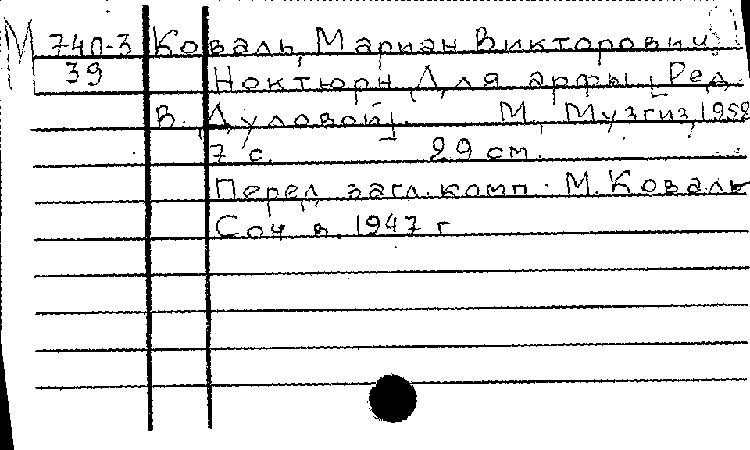 М 740-3 Коваль, Мариан Викторович
39 Ноктюрн Для арфы [Ред.
В. Дуловой]. М., Музгиз, 1952
7 с. 29 см.
Перед загл. комп. М. Коваль
Соч в. 1947 г